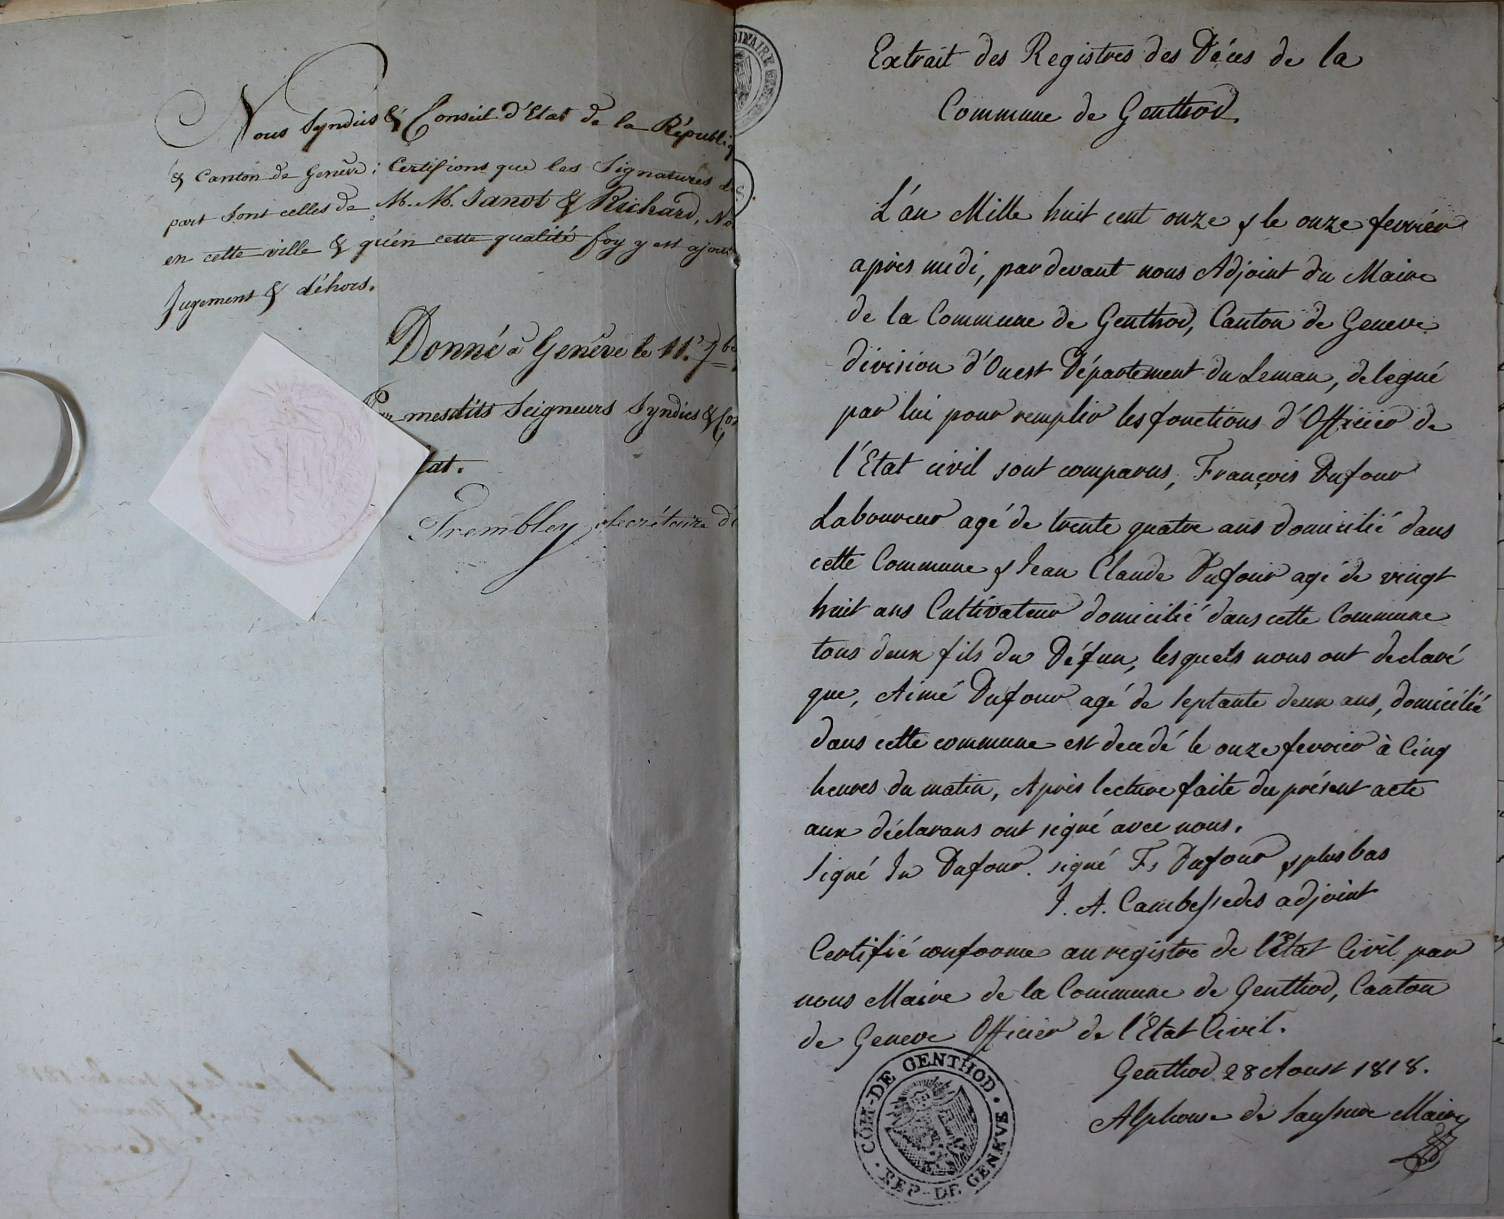 Nous Syndics & Conseil d'Etat de la Républi
& Canton de Genève; Certifions que les Signatures d
part sont celles de M. M. Janot & Richard, No
en cette ville & qu'en cette qualité foy y est ajou
Jugement & déhors.
Donné à Genève le 11.e 7bre
Pour mesdits Seigneurs Syndics & Co
tat.
Trembley, secrétaire d'
Extrait des Registres des Déces de la
Commune de Genthod.
L'an Mille huit cent onze & le onze fevrier
après midi, par devant nous Adjoint du Maire
de la Commune de Genthod, Canton de Geneve
division d'Ouest Département du Leman, delegué
par lui pour remplir les fonctions d'Officier de
l'Etat civil sont comparus, François Dufour
Laboureur agé de trente quatre ans domicilié dans
cette Commune & Jean Claude Dufour agé de vingt
huit ans Cultivateur domicilié dans cette Commune
tous deux fils du Défun, lesquels nous ont declaré
que, Aimé Dufour agé de septante deux ans, domicilié
dans cette commune est decedé le onze fevrier à Cinq
heures du matin, Après lecture faite du présent acte
aux déclarans ont signé avec nous.
signé Jn Dufour. signé Fs Dufour & plus bas
J. A. Cambessedes adjoint
Certifié conforme au registre de l'Etat Civil par
nous Maire de la Commune de Genthod, Canton
de Geneve Officier de l'Etat Civil.
Genthod 28 Aoust 1818.
Alphonse de Saussure Maire
COM-DE GENTHOD · REP-DE GENEVE